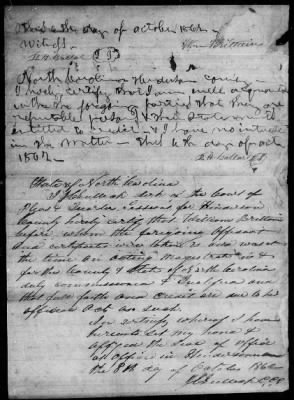 this 6 the day of october 1862
Wm Brittain
North Carolina Henderson County
I hereby certify that I am well acquainted
with the foregoing parties that they are
reputable persons & their Statements
entitled to credit & I have no interest
in the Matter this 6 th day of oct
1862
State of North Carolina
Clerk of the Court of
Pleas & Quarter Sessions for Henderson
County hereby certify that William Brittain
before whom the foregoing Affidavit
and certificate were taken is and was at
the time an acting Magistrate in &
for the County & State of North Carolina
duly commissioned & Qualified and
that full faith and credit are due to his
official Acts as such.
In testimony whereof I have
hereunto set my hand &
affixed the Seal of office
at office in Hendersonville
the 8th day of October 1862